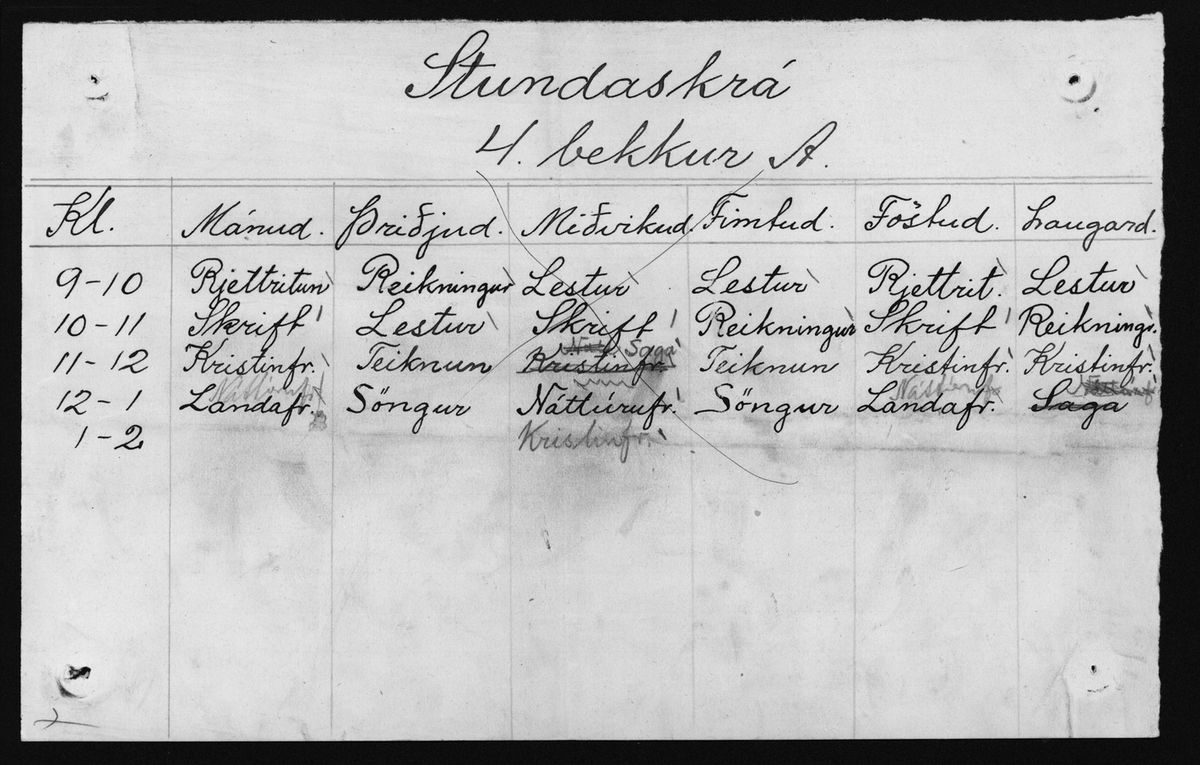 Stundaskrá
4. bekkur A.
Kl. Mánud. Þriðjud. Miðvikud. Fimtud. Föstud. Laugard.
9-10 Rjettritun Reikningur Lestur Lestur Rjettrit. Lestur
10-11 Skrift Lestur Skrift Reikningur Skrift Reiknings.
Saga
11-12 Kristinfr. Teiknun Kristinfr. Teiknun Kristinfr. Kristinfr.
Náttúrufr. Náttúrufr.
12-1 Landafr. Söngur Náttúrufr. Söngur Landafr. Saga
1-2 Kristinfr.